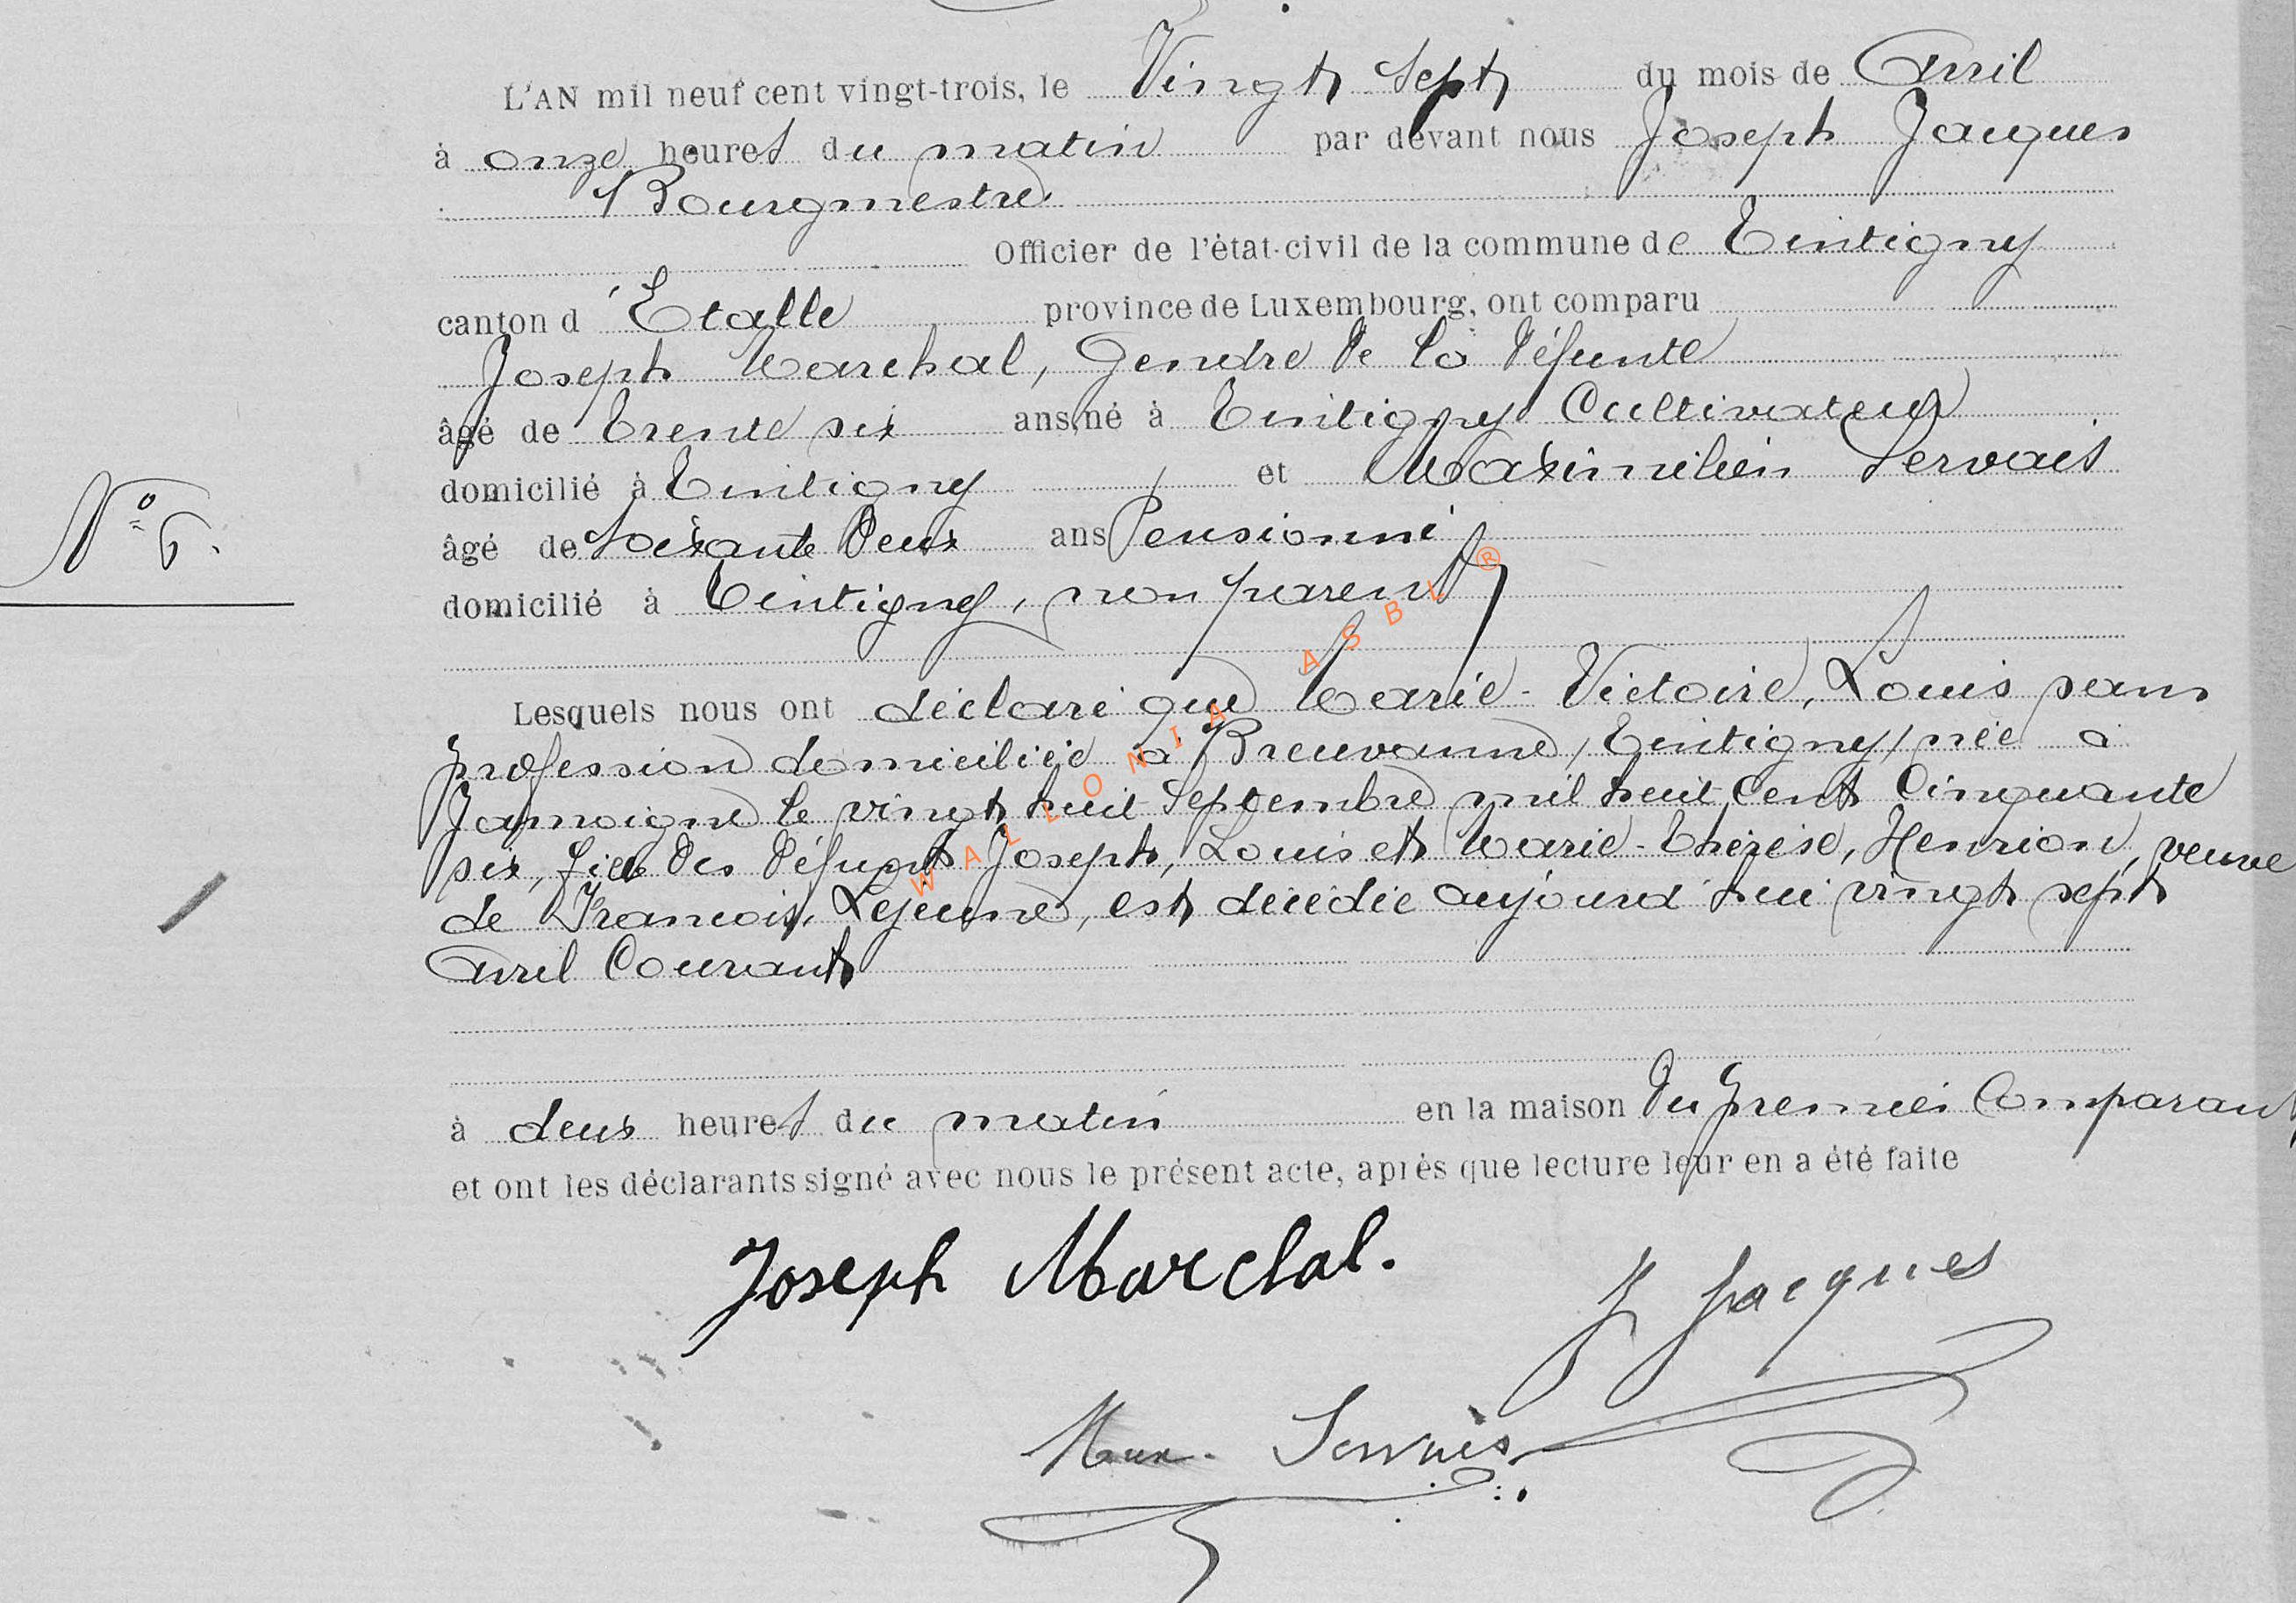 L'AN mil neuf cent vingt-trois, le Vingt Sept du mois de Avril
à onze heures du matin par devant nous Joseph Jacques
Bourgmestre
Officier de l'état-civil de la commune de Tintigny
canton d'Etalle province de Luxembourg, ont comparu
Joseph Marchal, Gendre de la défunte
âgé de Trente six ans, né à Tintigny Cultivateur
domicilié à Tintigny et Maximilien Servais
N° 6.
âgé de Soixante Deux ans Pensionné
domicilié à Tintigny, non parent
Lesquels nous ont déclaré que Marie-Victoire, Louis sans
profession domiciliée à Breuvanne, /Tintigny/ née à
Jamoigne le vingt huit Septembre mil huit Cent Cinquante
six, fille des défunts Joseph, Louis et Marie-Thérèse, Henrion, veuve
de François, Lejeune, est décédée aujourd'hui vingt sept
Avril Courant
à deux heures du matin en la maison du premier Comparant
et ont les déclarants signé avec nous le présent acte, après que lecture leur en a été faite
Joseph Marchal.
J Jacques
Max. Servais
WALLONIA ASBL ®